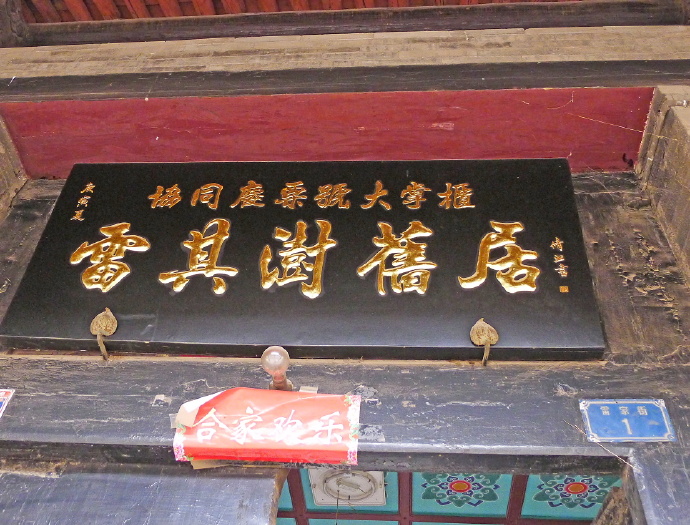 協同慶票號大掌櫃
雷其澍舊居
合家欢乐
雷家街
1